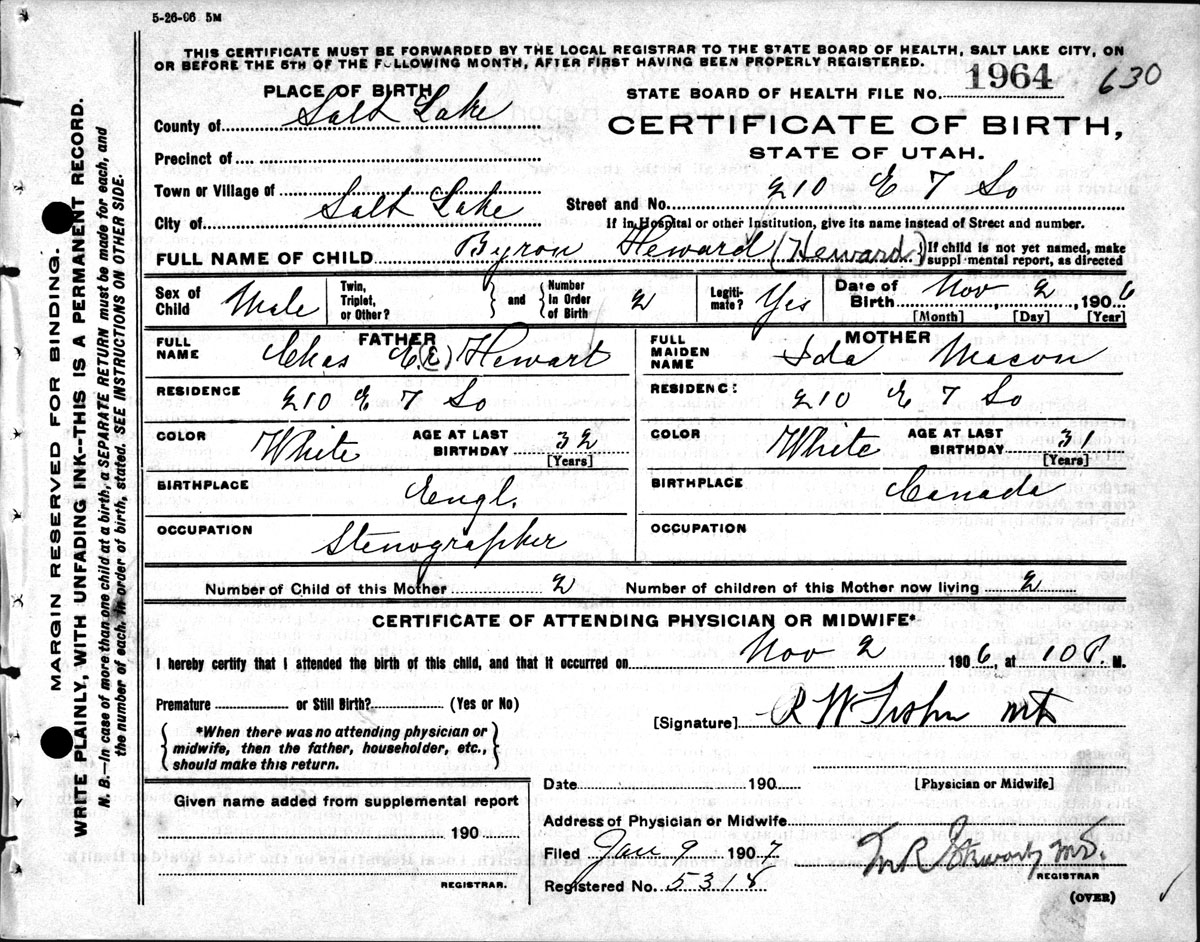 5-26-06 5M
THIS CERTIFICATE MUST BE FORWARDED BY THE LOCAL REGISTRAR TO THE STATE BOARD OF HEALTH, SALT LAKE CITY, ON
OR BEFORE THE 5TH OF THE FOLLOWING MONTH, AFTER FIRST HAVING BEEN PROPERLY REGISTERED.
PLACE OF BIRTH
STATE BOARD OF HEALTH FILE NO. 1964 630
County of Salt Lake
CERTIFICATE OF BIRTH,
STATE OF UTAH.
Precinct of
Town or Village of
Street and No. 210 E 7 So
City of Salt Lake
If in Hospital or other Institution, give its name instead of Street and number.
FULL NAME OF CHILD Byron Heward (Heward) {If child is not yet named, make
suppl mental report, as directed
Sex of Child Male Twin, Triplet, or Other? } and { Number In Order of Birth 2 Legiti- mate? Yes Date of Birth Nov 2, 1906
[Month] [Day] [Year]
FATHER
FULL NAME Chas C.(E) Hewart
RESIDENCE 210 E 7 So
COLOR White AGE AT LAST BIRTHDAY 32
[Years]
BIRTHPLACE Engl.
OCCUPATION Stenographer
MOTHER
FULL MAIDEN NAME Ida Macon
RESIDENC: 210 E 7 So
COLOR White AGE AT LAST BIRTHDAY 31
[Years]
BIRTHPLACE Canada
OCCUPATION
Number of Child of this Mother 2 Number of children of this Mother now living 2
CERTIFICATE OF ATTENDING PHYSICIAN OR MIDWIFE*
I hereby certify that I attended the birth of this child, and that it occurred on Nov 2 1906, at 10 P. M.
Premature or Still Birth? (Yes or No)
[Signature] R W
*When there was no attending physician or
midwife, then the father, householder, etc.,
should make this return.
Date 190 [Physician or Midwife]
Given name added from supplemental report
190
REGISTRAR.
Address of Physician or Midwife
Filed Jan 9 1907 M R Stewart MD.
REGISTRAR
Registered No. 5318
(OVER)
MARGIN RESERVED FOR BINDING.
WRITE PLAINLY, WITH UNFADING INK--THIS IS A PERMANENT RECORD.
N. B.—In case of more than one child at a birth, a SEPARATE RETURN must be made for each, and
the number of each, in order of birth, stated. SEE INSTRUCTIONS ON OTHER SIDE.